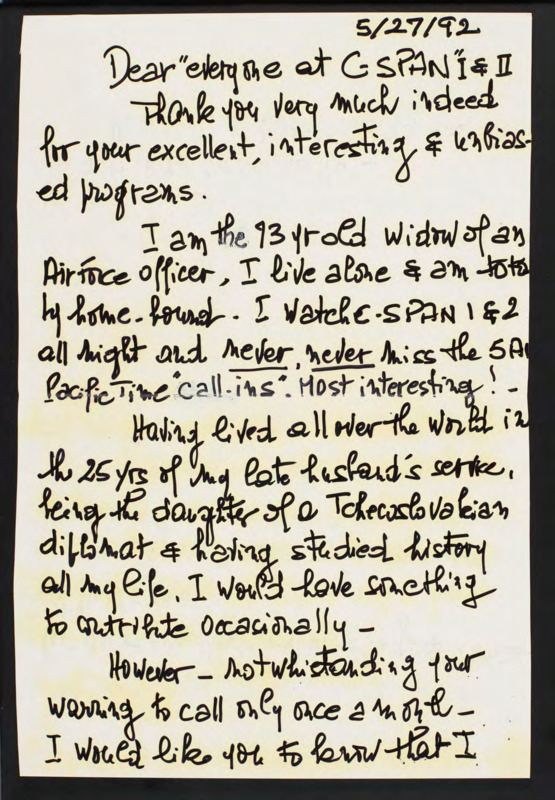 5/27/92
Dear "everyone at C-SPAN" I & II
Thank you very much indeed
for your excellent, interesting & unbias-
ed programs.
I am the 93 yr old widow of an
Air force officer, I live alone & am tota
ly home-bound. I watch C-SPAN 1 & 2
all night and never, never miss the 5 AM
Pacific Time "call-ins". Most interesting! -
Having lived all over the world in
the 25 yrs of my late husband's service,
being the daughter of a Tchecoslovakian
diplomat & having studied history
all my life, I would have something
to contribute occasionally -
However - notwhistanding your
warning to call only once a month -
I would like you to know that I